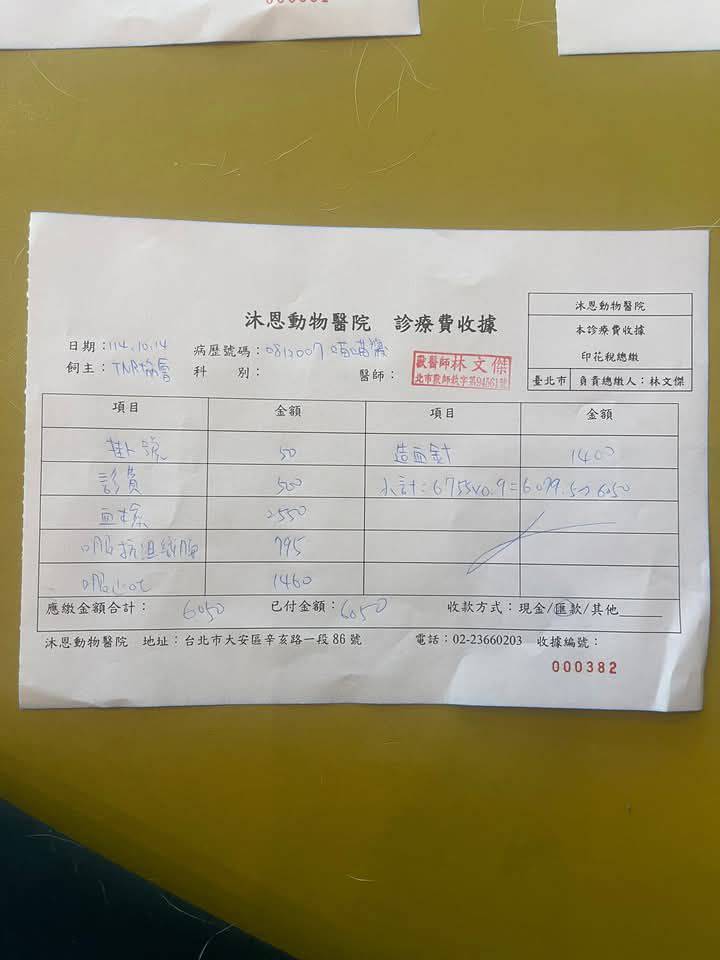 000382
沐恩動物醫院 診療費收據
沐恩動物醫院
本診療費收據
印花稅總繳
臺北市 負責總繳人：林文傑
日期：114.10.14 病歷號碼：0812007
飼主：TNR協會 科 別： 醫師： 獸醫師林文傑
北市獸師執字第94561號
項目 金額 項目 金額
掛號 50 造血針 1400
診費 500 小計：6755x0.9=6079.5→6050
血檢 2550
口服抗組織胺 795
口服 1460
應繳金額合計： 6050 已付金額：6050 收款方式：現金/匯款/其他
沐恩動物醫院 地址：台北市大安區辛亥路一段86號 電話：02-23660203 收據編號：
000382